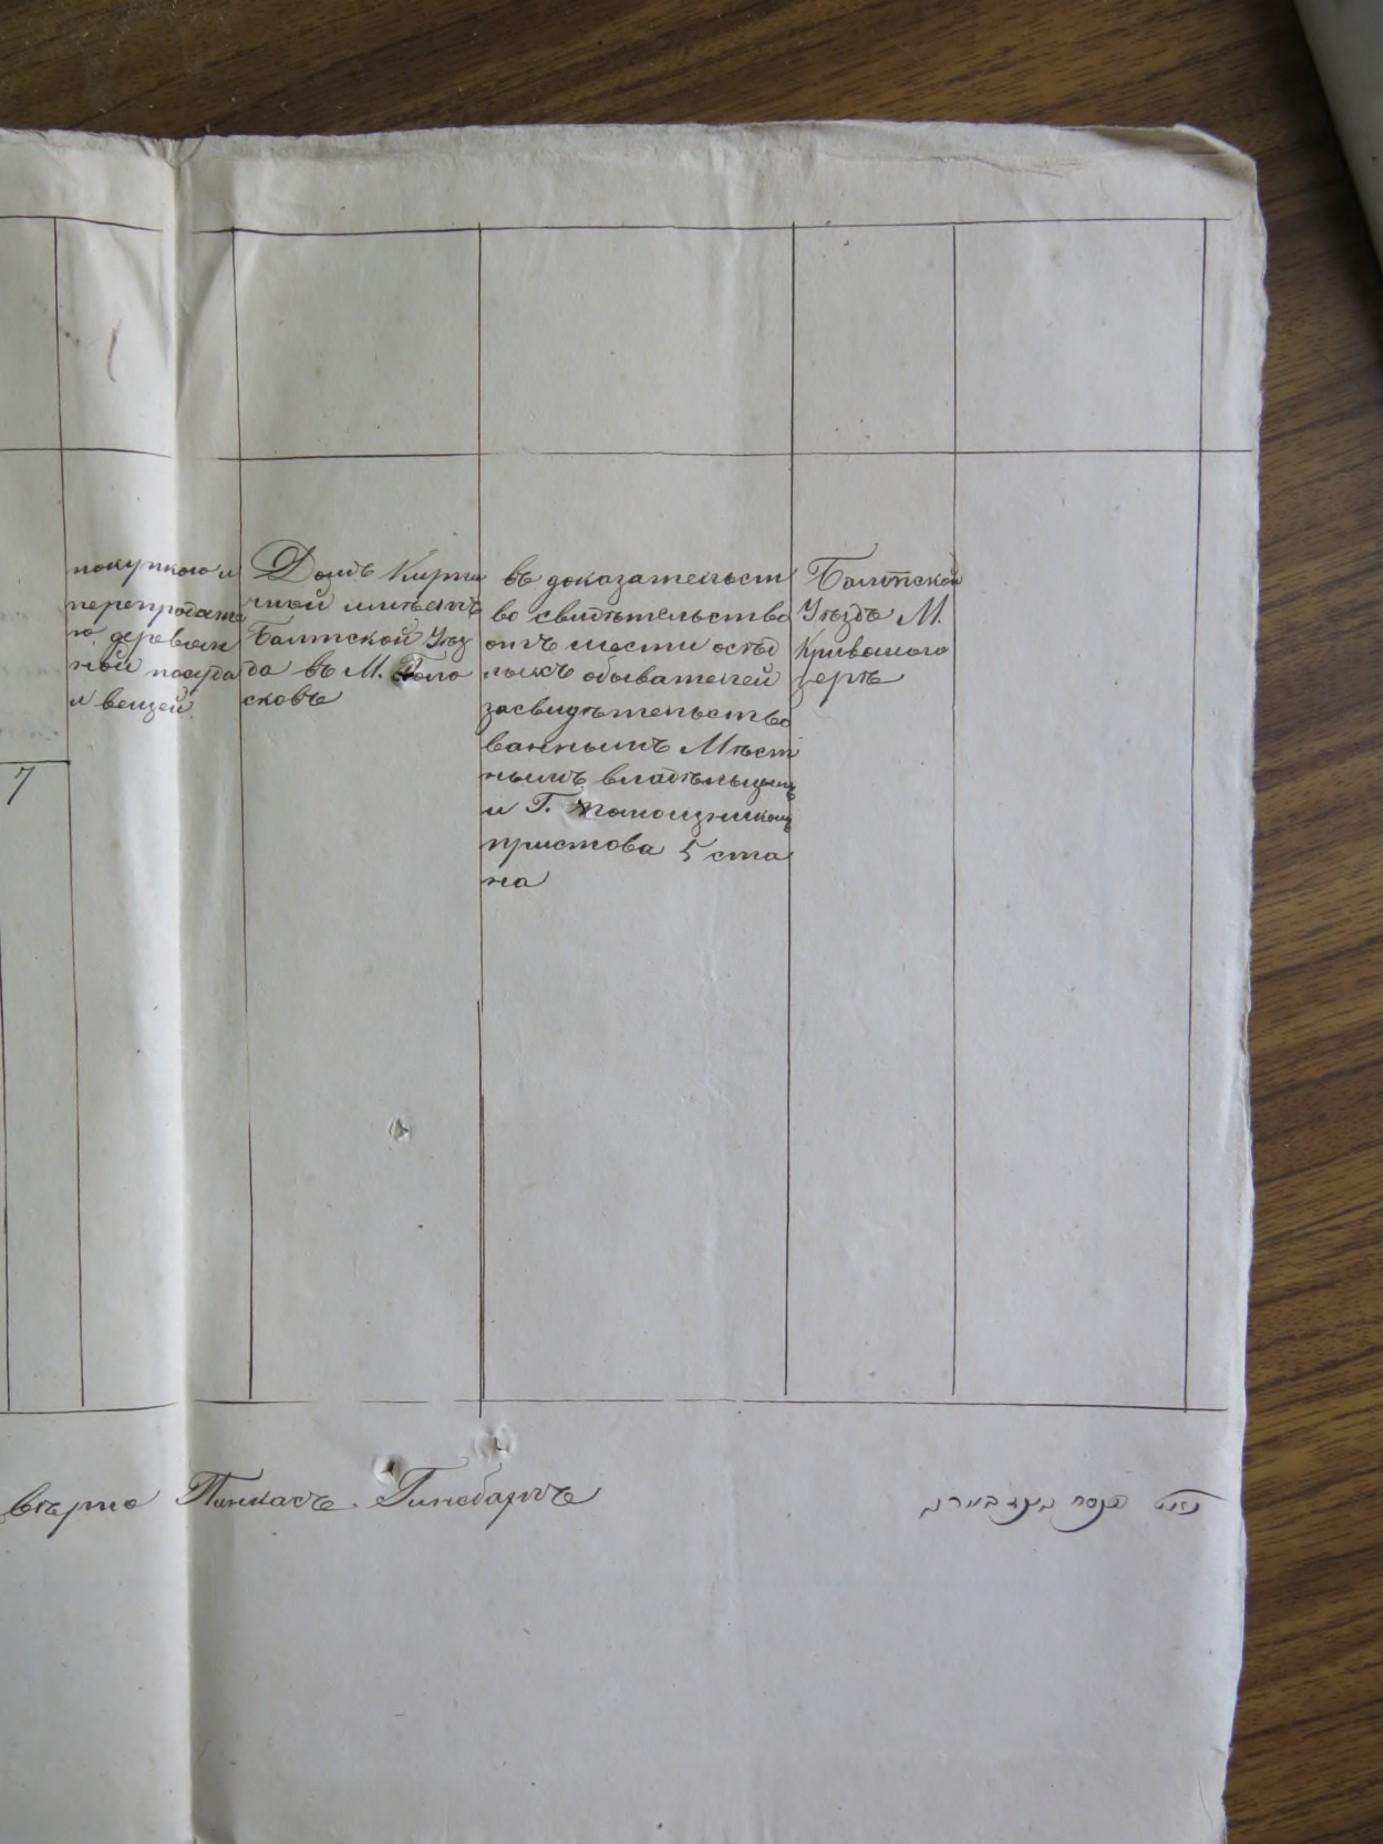 покупкою и
перепродажи
ю деревян
ной посуды
и вещей
7
Домъ Кирпи
чной имѣетъ
Балтской Уѣз
да въ М. Голо
сковѣ
въ доказательст
во свидѣтельство
отъ шести осѣд
лыхъ обывателей
засвидѣтельство
ваннымъ Мѣст
нымъ владѣльцемъ
и Г. помощникомъ
пристова 5 ста
на
Балтской
Уѣздъ М.
Кривомъ
вѣрно Пинкасъ Гинсбаргъ